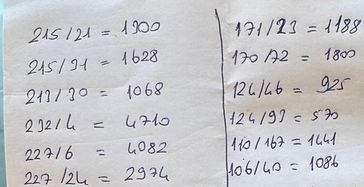 215/21 = 1900
215/31 = 1628
213/30 = 1068
232/4 = 4710
227/6 = 4082
227/24 = 2974
171/23 = 1188
170/72 = 1800
124/46 = 925
124/93 = 570
110/167 = 1441
106/40 = 1086